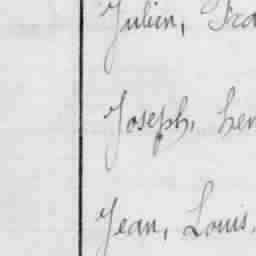 Julien, Fra
Joseph, hen
Jean, Louis,